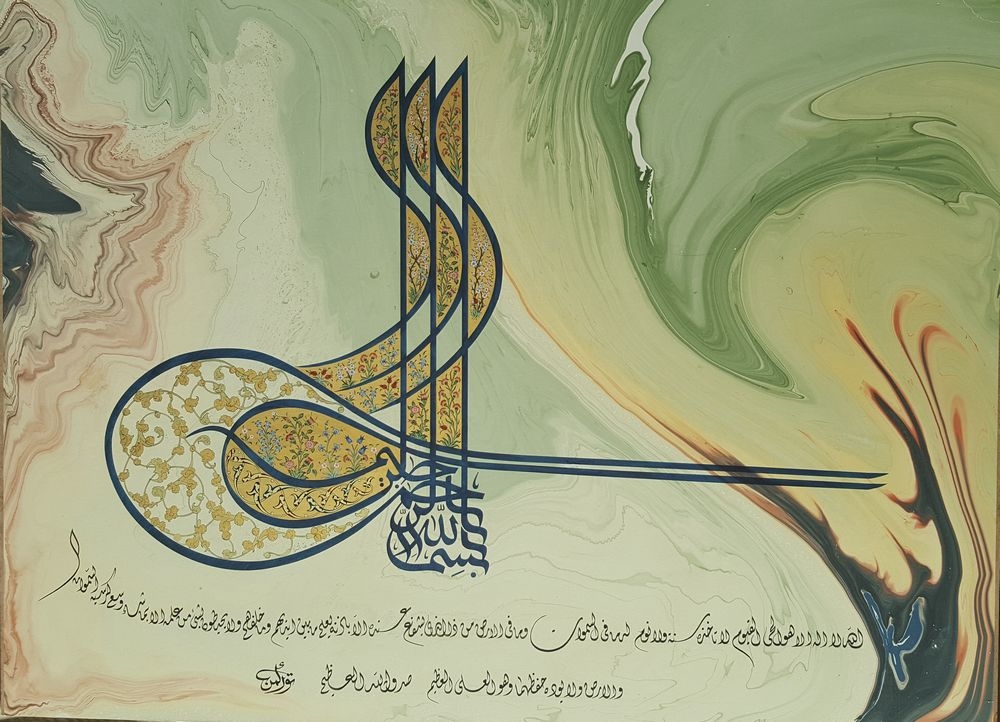 بسم الله الرحمن الرحيم
الله لا اله الا هو الحي القيوم لا تاخذه سنة ولا نوم له ما في السموات وما في الارض من ذا الذي يشفع عنده الا باذنه يعلم ما بين ايديهم وما خلفهم ولا يحيطون بشئ من علمه الا بما شاء وسع كرسيه السموات
والارض ولا يوده حفظهما وهو العلي العظيم صدق الله العظيم